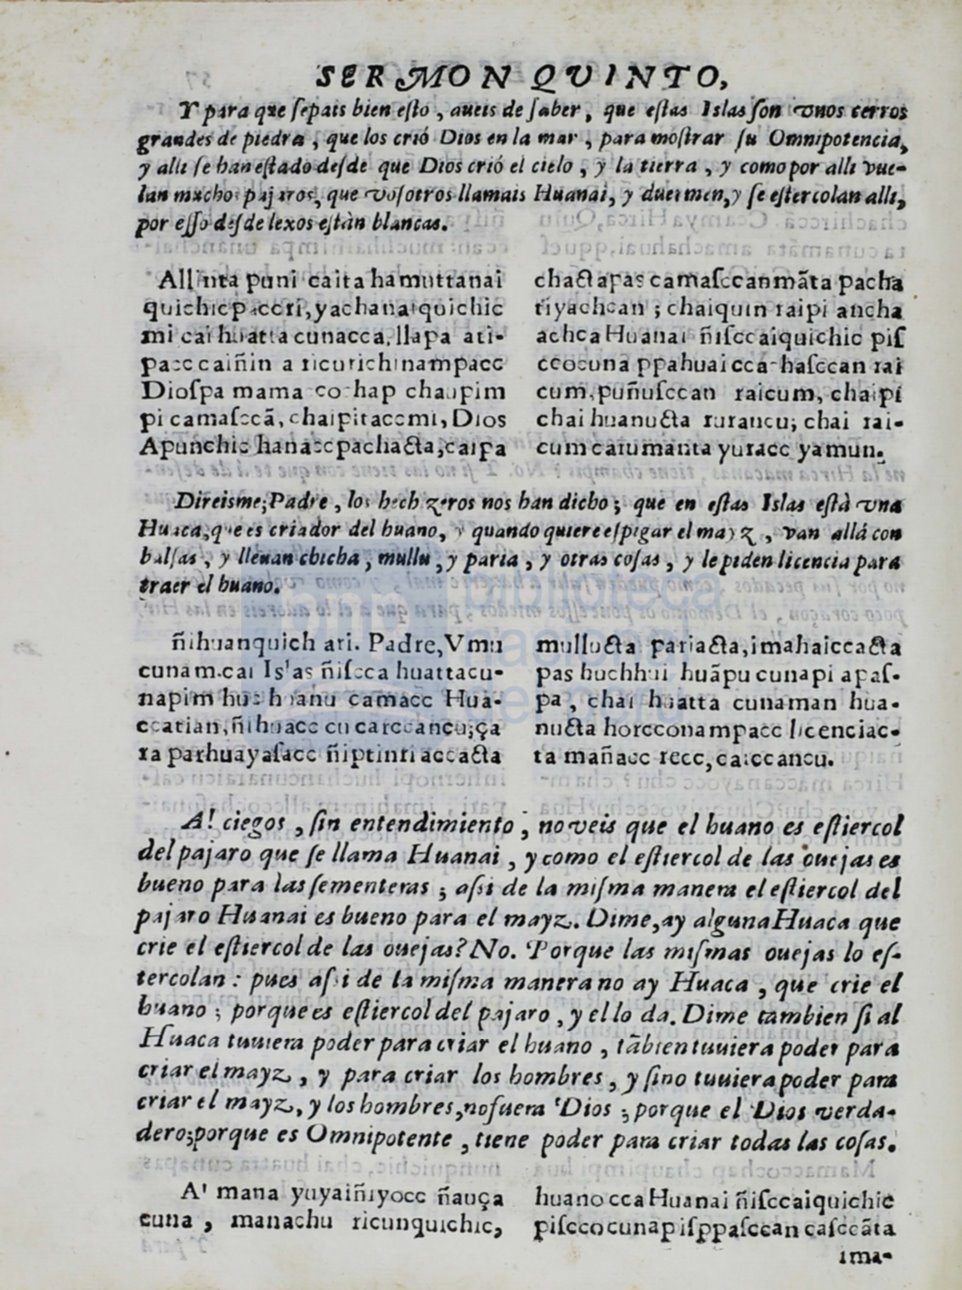 SERMON QVINTO,
Y para que ſepais bien eſto, aueis de ſaber, que eſtas Islas ſon vnos cerros
grandes de piedra, que los crió Dios en la mar, para moſtrar ſu Omnipotencia,
y alli ſe han eſtado deſde que Dios crió el cielo, y la tierra, y como por alli vue-
lan muchos pajaros, que voſotros llamais Huanai, y duermen, y ſe eſtercolan alli,
por eſſo deſde lexos eſtàn blancas.
Allinta puni caita hamuttanai
quichicpaccri, yachanaiquichic
mi cai huatta cunacca, llapa ati-
pacccaiñin a ricurichinampacc
Dioſpa mama cochap chaupim
pi camaſccã, chaipitaccmi, Dios
Apunchic hanaccpachacta, caipa
chactapas camaſccanmãta pacha
tiyachcan; chaiquin raipi ancha
achca Huanai ñiſccaiquichic piſ
ccocuna ppahuaiccachaſccan rai
cum, puñuſccan raicum, chaipi
chai huanucta rurancu; chai rai-
cum carumanta yuracc yamun.
Direisme; Padre, los hechizeros nos han dicho; que en eſtas Islas eſtà vna
Huaca, que es criador del huano, y quando quiere eſpigar el mayz, van allá con
balſas, y lleuan chicha, mullu, y paria, y otras coſas, y le piden licencia para
traer el huano.
ñihuanquich ari. Padre, Vmu
cunam. cai Islas ñiſcca huattacu-
napim huc huanu camacc Hua-
ccatian, ñihuacc cu carccancu; ça
ra parhuayaſacc ñiptinri accacta
mullucta pariacta, imahaiccacta
pas huchhui huãpu cunapi apaſ-
pa, chai huatta cunaman hua-
nucta horcconampacc licenciac-
ta mañacc recc, carccancu.
A! ciegos, ſin entendimiento; no veis que el huano es eſtiercol
del pajaro que ſe llama Huanai, y como el eſtiercol de las ouejas es
bueno para las ſementeras; aſsi de la miſma manera el eſtiercol del
pajaro Huanai es bueno para el mayz. Dime, ay alguna Huaca que
crie el eſtiercol de las ouejas? No. Porque las miſmas ouejas lo eſ-
tercolan: pues aſsi de la miſma manera no ay Huaca, que crie el
huano; porque es eſtiercol del pajaro, y el lo da. Dime tambien ſi al
Huaca tuuiera poder para criar el huano, tãbien tuuiera poder para
criar el mayz, y para criar los hombres, y ſino tuuiera poder para
criar el mayz, y los hombres, no fuera Dios; porque el Dios verda-
dero; porque es Omnipotente, tiene poder para criar todas las coſas.
A' mana yuyaiñiyocc ñauça
cuna, manachu ricunquichic,
huano cca Huanai ñiſccaiquichic
piſccocunap iſppaſccan caſccãta
ima-